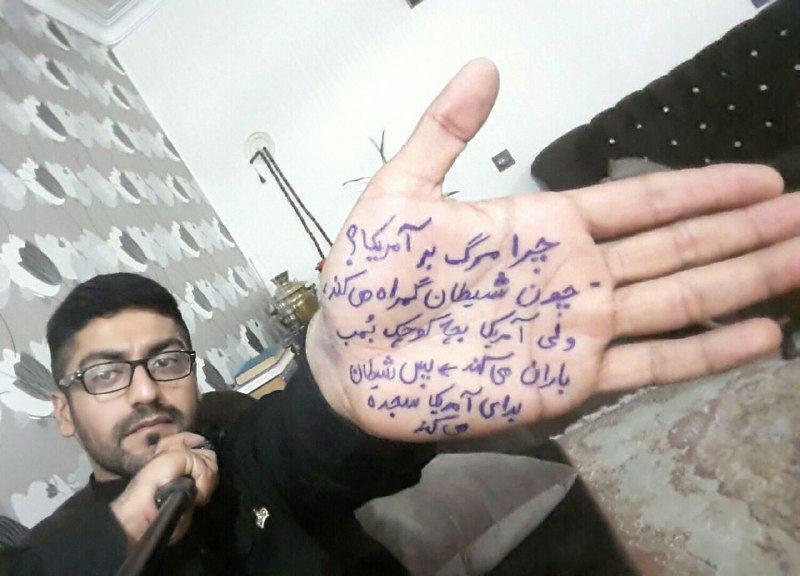 چرا مرگ بر آمریکا؟
- چون شیطان گمراه می‌کند،
ولی آمریکا بچۀ کوچک بُمب
باران می‌کند ← پس شیطان
برای آمریکا سجده
می‌کند